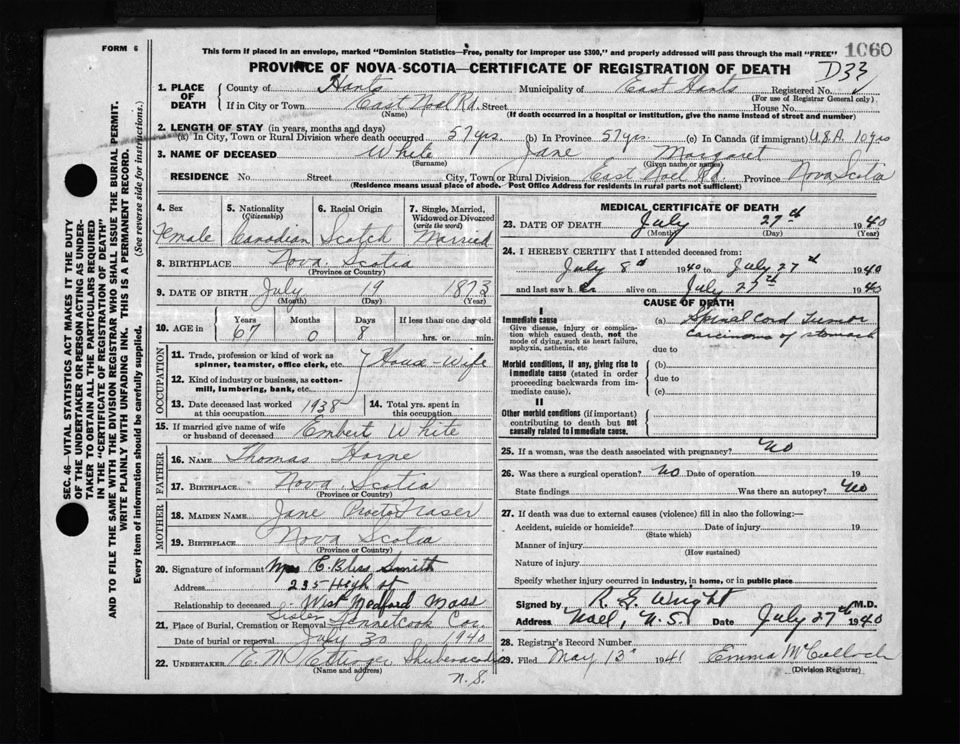 FORM 6
This form if placed in an envelope, marked "Dominion Statistics—Free, penalty for improper use $300," and properly addressed will pass through the mail "FREE"
1060
PROVINCE OF NOVA SCOTIA—CERTIFICATE OF REGISTRATION OF DEATH
D33
1. PLACE OF DEATH
County of Hants Municipality of East Hants Registered No.
(For use of Registrar General only)
If in City or Town East Noel Rd. Street House No.
(Name) (If death occurred in a hospital or institution, give the name instead of street and number)
2. LENGTH OF STAY (in years, months and days)
(a) In City, Town or Rural Division where death occurred 57 yrs. (b) In Province 57 yrs. (c) In Canada (if immigrant) U.S.A. 10 yrs
3. NAME OF DECEASED White Jane Margaret
(Surname) (Given name or names)
RESIDENCE No. Street City, Town or Rural Division East Noel Rd Province Nova Scotia
(Residence means usual place of abode. Post Office Address for residents in rural parts not sufficient)
SEC. 46—VITAL STATISTICS ACT MAKES IT THE DUTY
OF THE UNDERTAKER OR PERSON ACTING AS UNDER-
TAKER TO OBTAIN ALL THE PARTICULARS REQUIRED
IN THE "CERTIFICATE OF REGISTRATION OF DEATH"
AND TO FILE THE SAME WITH THE DIVISION REGISTRAR WHO SHALL ISSUE THE BURIAL PERMIT.
WRITE PLAINLY WITH UNFADING INK. THIS IS A PERMANENT RECORD.
Every item of information should be carefully supplied. (See reverse side for instructions.)
4. Sex
Female
5. Nationality
(Citizenship)
Canadian
6. Racial Origin
Scotch
7. Single, Married, Widowed or Divorced
(write the word)
Married
8. BIRTHPLACE Nova Scotia
(Province or Country)
9. DATE OF BIRTH July 19 1873
(Month) (Day) (Year)
10. AGE in
Years Months Days If less than one day old
67 0 8 hrs. or min.
OCCUPATION
11. Trade, profession or kind of work as spinner, teamster, office clerk, etc. House-Wife
12. Kind of industry or business, as cotton-mill, lumbering, bank, etc.
13. Date deceased last worked at this occupation 1938
14. Total yrs. spent in this occupation
15. If married give name of wife or husband of deceased Embert White
FATHER
16. NAME Thomas Horne
17. BIRTHPLACE Nova Scotia
(Province or Country)
MOTHER
18. MAIDEN NAME Jane Proctor Fraser
19. BIRTHPLACE Nova Scotia
(Province or Country)
20. Signature of informant Mrs E. Bliss Smith
Address 235 High St
Relationship to deceased West Medford Mass
Sister
21. Place of Burial, Cremation or Removal Kennetcook Cor.
Date of burial or removal July 30 1940
22. UNDERTAKER E. M. Ettinger Shubenacadie
(Name and address)
N.S.
MEDICAL CERTIFICATE OF DEATH
23. DATE OF DEATH July 27th 1940
(Month) (Day) (Year)
24. I HEREBY CERTIFY that I attended deceased from:
July 8th 1940 to July 27th 1940
and last saw her alive on July 27th 1940
CAUSE OF DEATH
I
Immediate cause
Give disease, injury or complication which caused death, not the mode of dying, such as heart failure, asphyxia, asthenia, etc
(a) Spinal Cord Tumor
Carcinoma of stomach
due to
Morbid conditions, if any, giving rise to immediate cause (stated in order proceeding backwards from immediate cause).
(b)
due to
(c)
II
Other morbid conditions (if important) contributing to death but not causally related to immediate cause.
25. If a woman, was the death associated with pregnancy? No
26. Was there a surgical operation? No Date of operation 19
State findings Was there an autopsy? No
27. If death was due to external causes (violence) fill in also the following:—
Accident, suicide or homicide? Date of injury 19
(State which)
Manner of injury
(How sustained)
Nature of injury
Specify whether injury occurred in industry, in home, or in public place
Signed by R. G. Wright M.D.
Address Noel, N.S. Date July 27th 1940
28. Registrar's Record Number
29. Filed May 13 1941 Emma McCulloch
(Division Registrar)